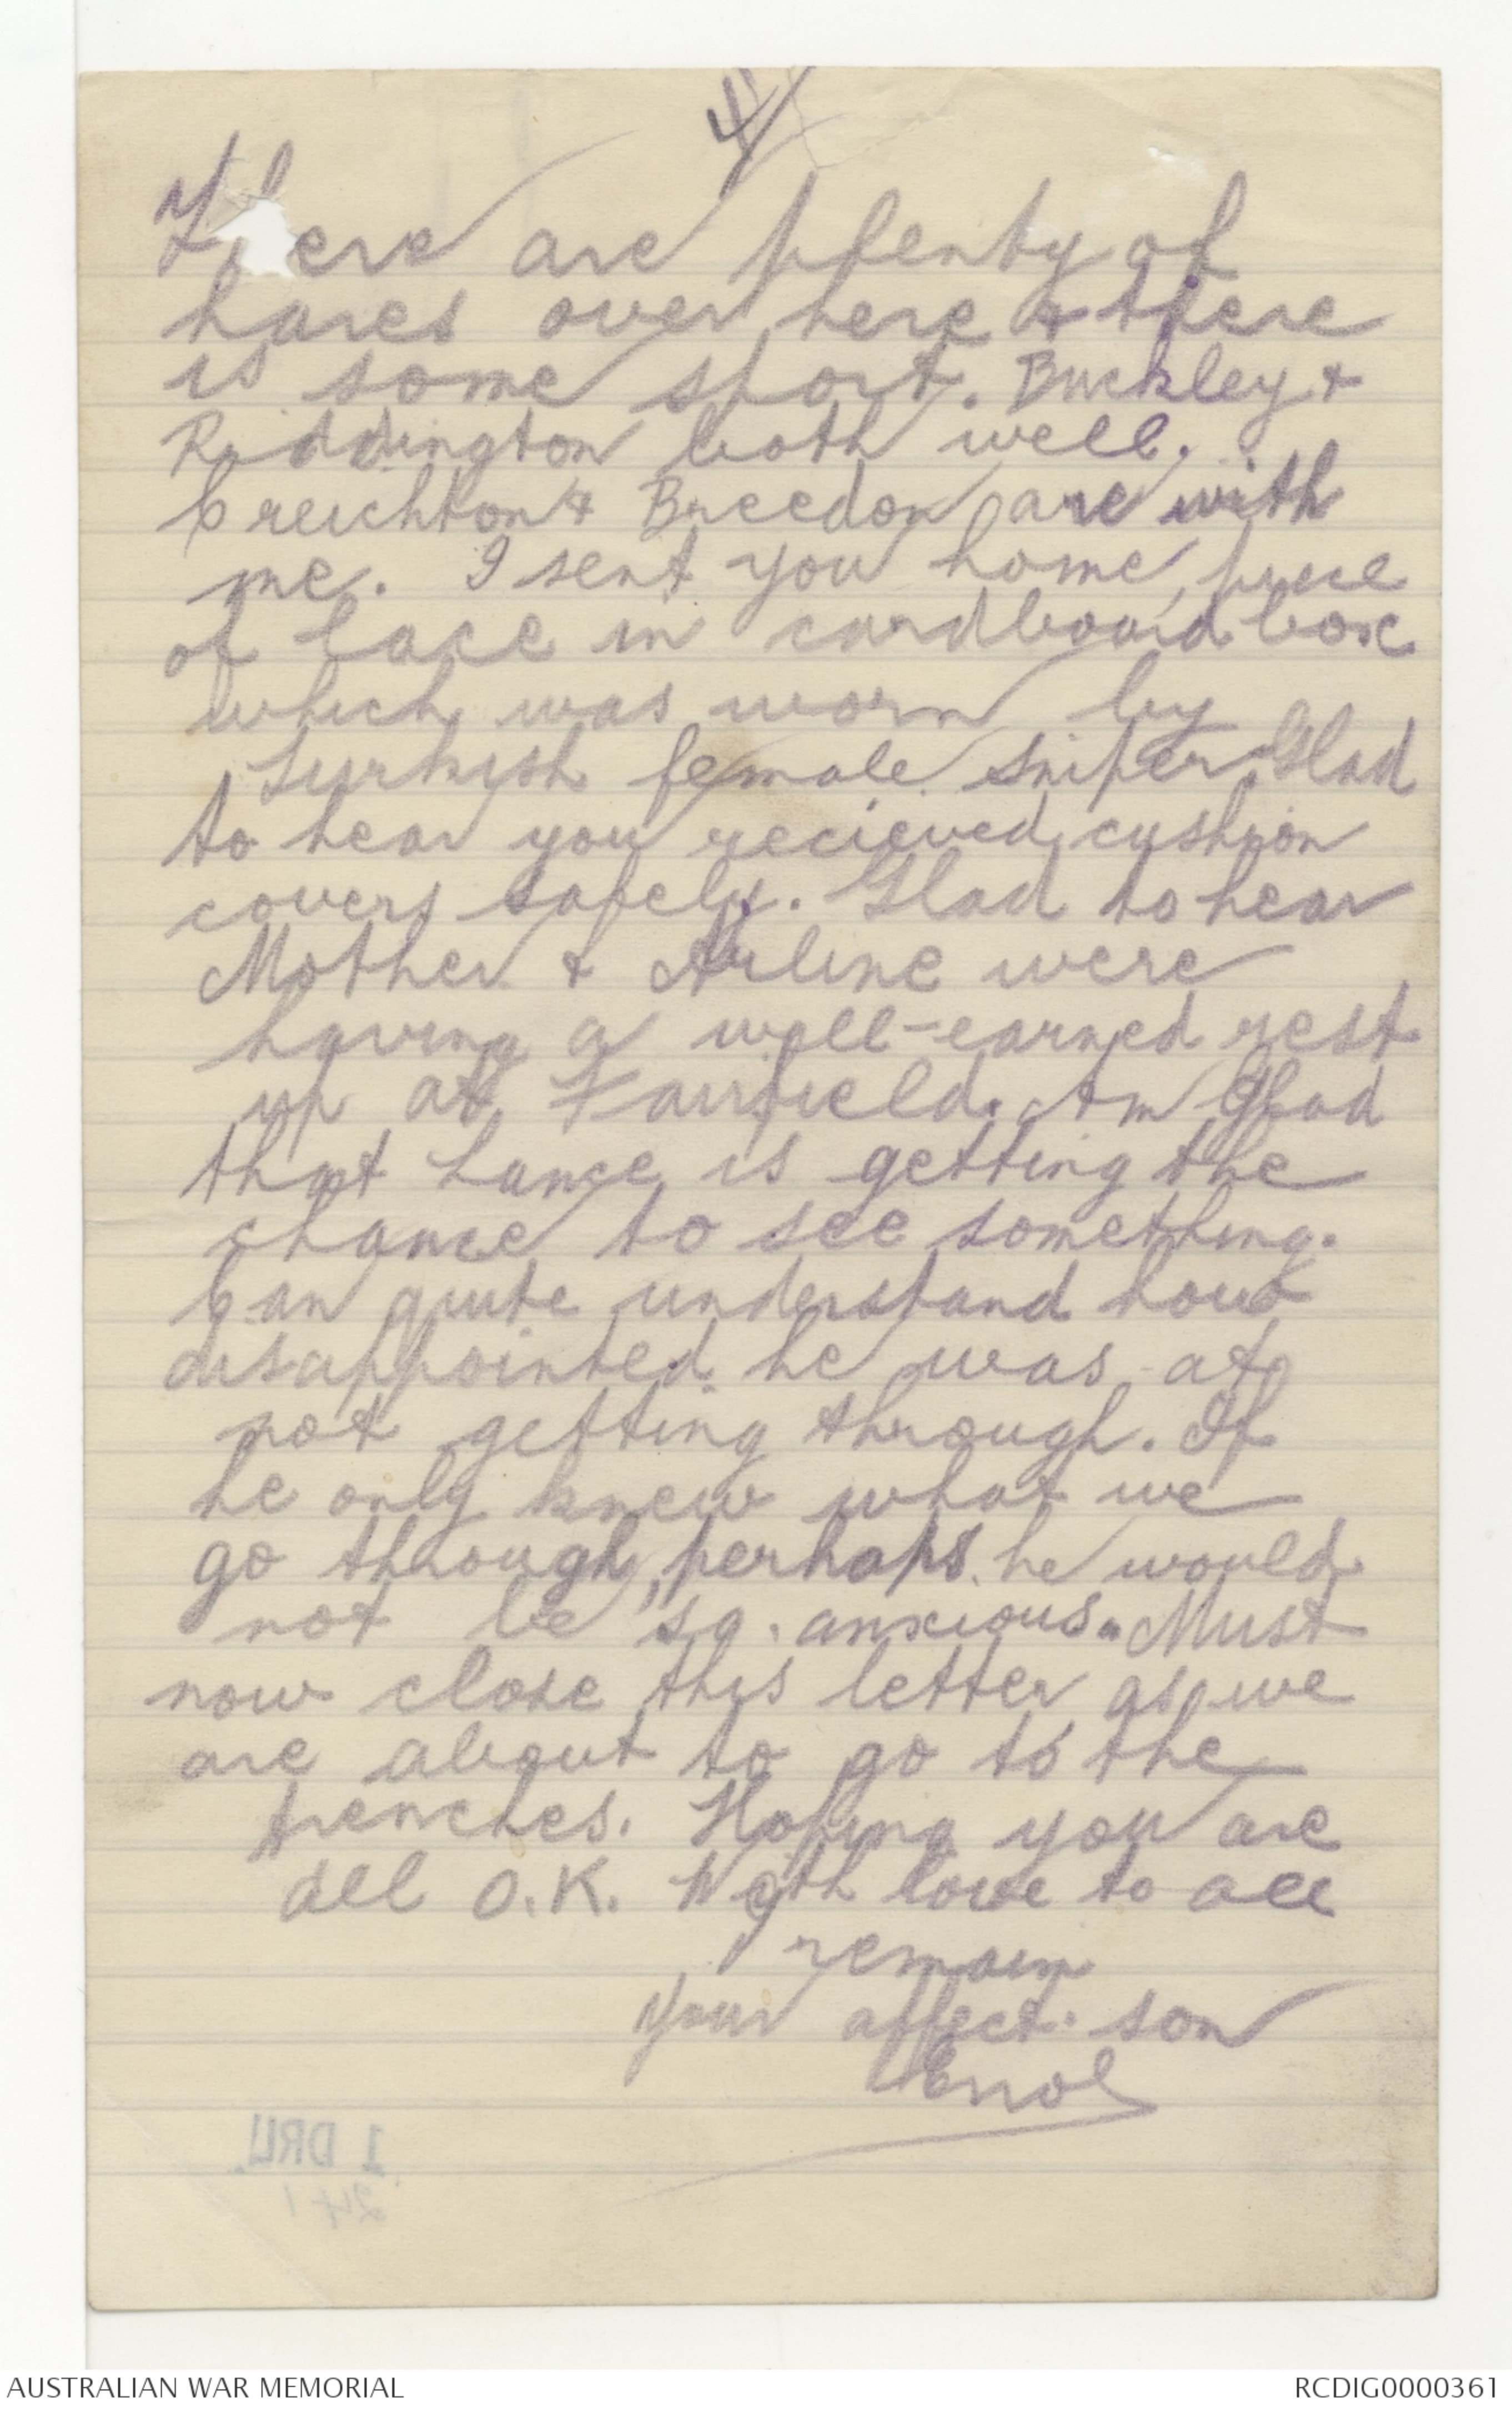 4/
There are plenty of
hares over here & there
is some sport. Buckley &
Riddington both well.
Creichton & Breedon are with
me. I sent you home piece
of lace in cardboard box
which was worn by
Turkish female sniper. Glad
to hear you recieved cushion
covers safely. Glad to hear
Mother & Airline were
having a well-earned rest
up at Fairfield. Am Glad
that Lance is getting the
chance to see something.
Can quite understand how
disappointed he was at
not getting through. If
he only knew what we
go through, perhaps he would
not be so anxious. Must
now close this letter as we
are about to go to the
trenches. Hoping you are
all O.K. With love to all
I remain
Your affect. son
Errol
1 DRL
241
AUSTRALIAN WAR MEMORIAL
RCDIG0000361